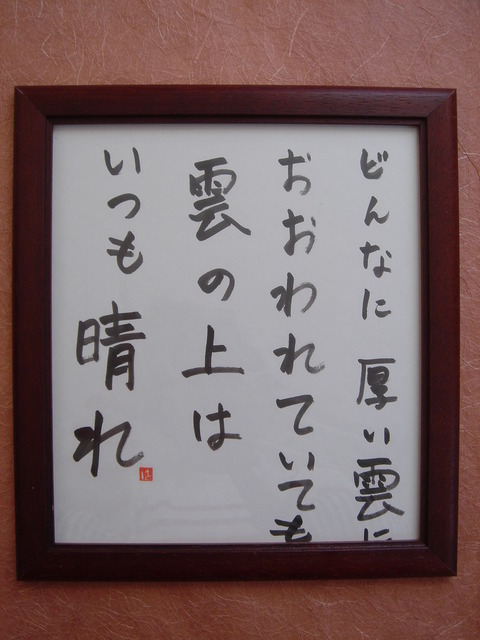 どんなに 厚い雲に
おおわれていても
雲の上は
いつも 晴れ
は